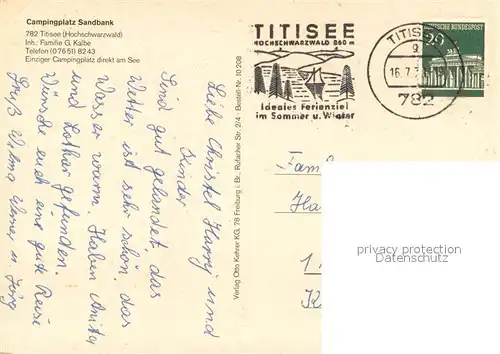 Campingplatz Sandbank
782 Titisee (Hochschwarzwald)
Inh.: Familie G. Kalbe
Telefon (0 76 51) 82 43
Einziger Campingplatz direkt am See
Liebe Christel Harry und
Kinder
Sind gut gelandet, das
Wetter ist sehr schön, das
Wasser warm. Haben Anita
und Lothar gefunden.
Wünsche euch eine gute Reise
Gruß Wilma Werner u. Jörg
Verlag Otto Kehrer KG, 78 Freiburg i. Br., Rufacher Str. 2/4 · Bestell-Nr. 10 208
TITISEE
HOCHSCHWARZWALD 860 m
Ideales Ferienziel
im Sommer u. Winter
TITISEE
g
16.7.7
782
DEUTSCHE BUNDESPOST
20
Fam
Ha
1
K
privacy protection
Datenschutz